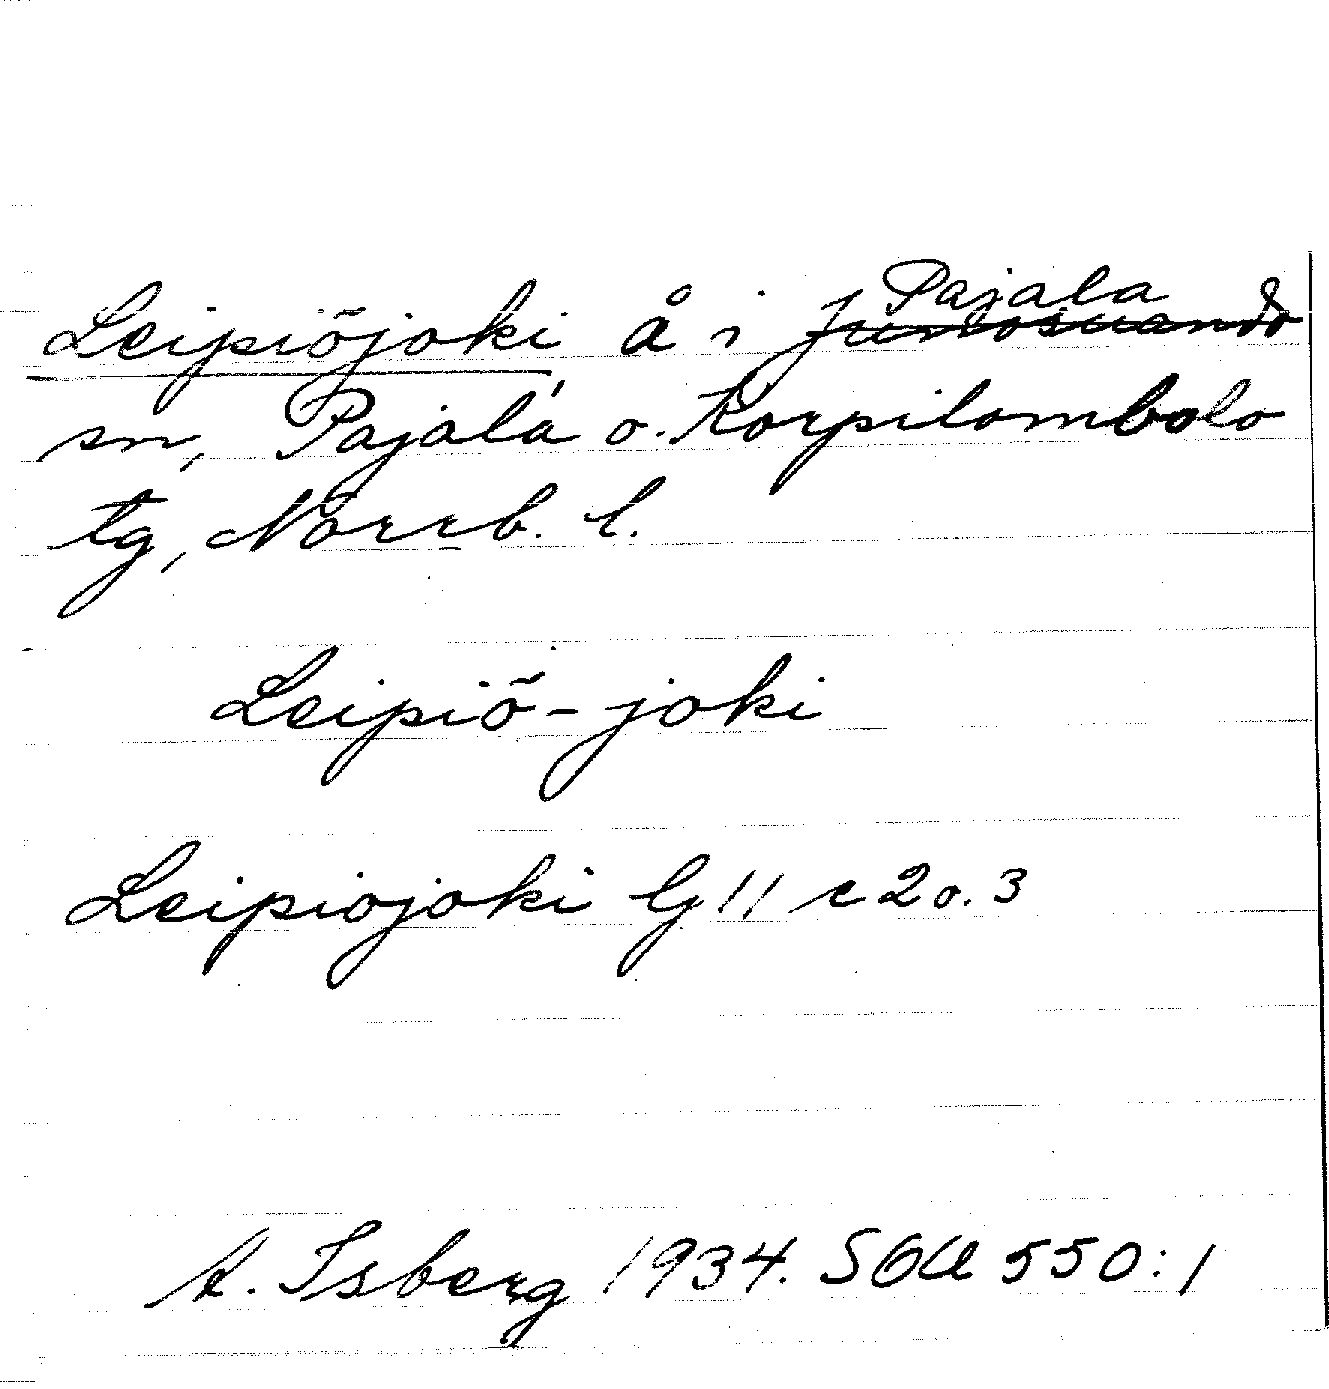 Leipiöjoki å i Junosuando Pajala
sn, Pajala o. Korpilombolo
tg, Norrb. l.
Leipiö-joki
Leipiojoki G 11 c 2 o. 3
A. Isberg 1934. SOU 550:1